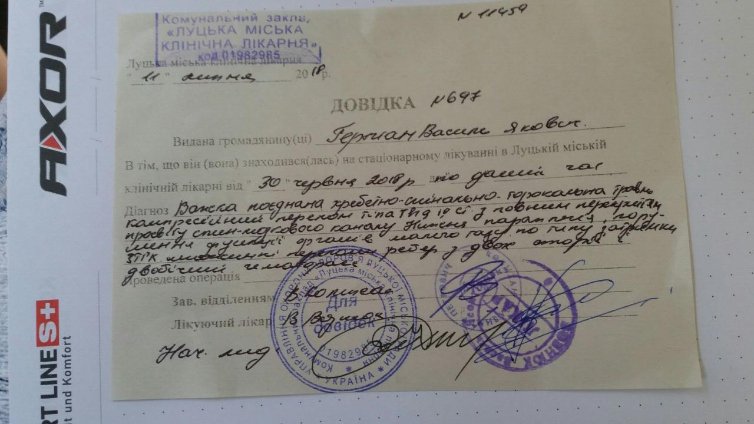 N 11459
Комунальний заклад
«ЛУЦЬКА МІСЬКА
КЛІНІЧНА ЛІКАРНЯ»
код 01982985
Луцька міська клінічна лікарня
"11" липня 2018р.
ДОВІДКА N 697
Видана громадянину(ці) Герман Василь Якович.
В тім, що він (вона) знаходився(лась) на стаціонарному лікуванні в Луцькій міській
клінічній лікарні від "30" червня 2018р по даний час
Діагноз Важка поєднана хребетно-спінально-торакальна травма
компресійний перелом тіла Th з повним перекриттям
просвіту спин-мозкового каналу Нижня параплегія, пору-
шення функції органів малого тазу по типу затримки
ЗТГК множинні переломи ребер з двох сторін
двобічний гемоторакс
Проведена операція
Зав. відділенням
Лікуючий лікар
Нач. мед
Для
довідок
УКРАЇНА
AXOR
RT LINE S+
rt und Komfort